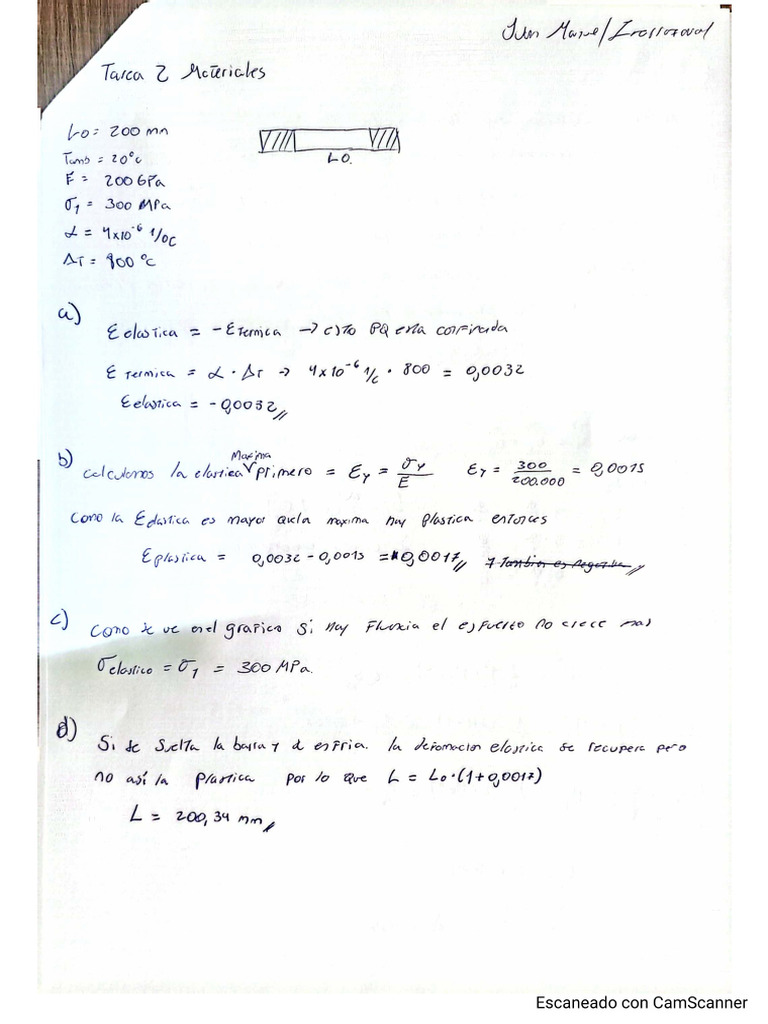 Juan Manuel Irarrazaval
Tarea 2 Materiales
Lo = 200 mm
Tamb = 20°c
E = 200 GPa
σy = 300 MPa
α = 4x10⁻⁶ 1/°C
ΔT = 800 °C
Lo.
a)
Eelastica = - Etermica → esto PQ esta confinada
E termica = α · ΔT → 4x10⁻⁶ 1/c · 800 = 0,0032
Eelastica = -0,0032
b) calculamos la elastica Maxima primero = Ey = σy/E Ey = 300/200.000 = 0,0015
Como la Eelastica es mayor que la maxima hay plastica entonces
Eplastica = 0,0032 - 0,0015 = 0,0017
c) Como se ve en el grafico si hay fluxia el esfuerzo no crece mas
σelastico = σy = 300 MPa.
d) Si se suelta la barra y d enfria. la deformacion elastica se recupera pero
no así la plastica por lo que L = Lo·(1+0,0017)
L = 200,34 mm
Escaneado con CamScanner